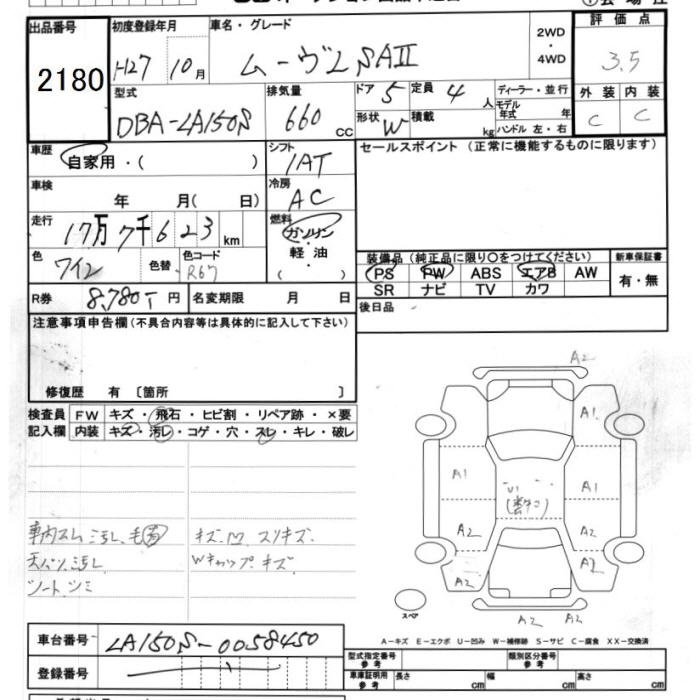 出品番号 初度登録年月 車名・グレード 2WD・4WD 評価点
2180 H27 10月 ムーヴL SAⅡ 3.5
型式 排気量 ドア 5 定員 4人 ディーラー・並行 外装 内装
DBA-LA150S 660cc 形状 W 積載 kg モデル年式 年 C C
ハンドル 左・右
車歴 自家用・( ) シフト セールスポイント (正常に機能するものに限ります)
IAT
車検 年 月( 日) 冷房 AC
走行 17万7千623km 燃料 ガソリン・軽油・( )
色 ワイン 色替 色コード R67
装備品(純正品に限り○をつけてください) 新車保証書
PS PW ABS エアB AW 有・無
SR ナビ TV カワ
R券 8,780 円 名変期限 月 日 後日品
注意事項申告欄(不具合内容等は具体的に記入して下さい)
修復歴 有 〔箇所 〕
検査員 FW キズ・飛石・ヒビ割・リペア跡・×要
記入欄 内装 キズ・汚レ・コゲ・穴・スレ・キレ・破レ
A2
A1
A1 A1
A2 A2
A2 A2
A2 A2
車内スム 汚レ、毛有 キズ 凹 スリキズ
天バリ汚レ Wキャップ キズ
シート シミ
スペア
A-キズ E-エクボ U-凹み W-補修跡 S-サビ C-腐食 XX-交換済
車台番号 LA150S-0058450
登録番号
型式指定番号 参考 類別区分番号 参考
車庫証明用 参考 長さ cm 幅 cm 高さ cm